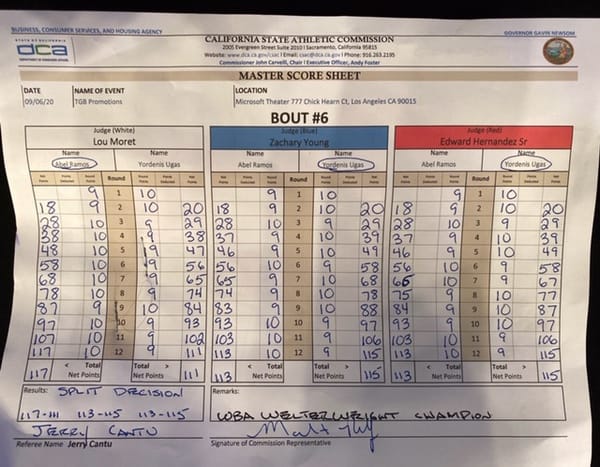 BUSINESS, CONSUMER SERVICES, AND HOUSING AGENCY GOVERNOR GAVIN NEWSOM
STATE OF CALIFORNIA
dca
DEPARTMENT OF CONSUMER AFFAIRS
CALIFORNIA STATE ATHLETIC COMMISSION
2005 Evergreen Street Suite 2010 | Sacramento, California 95815
Website: www.dca.ca.gov/csac | Email: csac@dca.ca.gov | Phone: 916.263.2195
Commissioner John Carvelli, Chair | Executive Officer, Andy Foster
MASTER SCORE SHEET
DATE NAME OF EVENT LOCATION
09/06/20 TGB Promotions Microsoft Theater 777 Chick Hearn Ct, Los Angeles CA 90015
BOUT #6
Judge (White) Judge (Blue) Judge (Red)
Lou Moret Zachary Young Edward Hernandez Sr
Name Name Name Name Name Name
Abel Ramos Yordenis Ugas Abel Ramos Yordenis Ugas Abel Ramos Yordenis Ugas
Net Points Points Deducted Round Points Round Round Points Points Deducted Net Points Net Points Points Deducted Round Points Round Round Points Points Deducted Net Points Net Points Points Deducted Round Points Round Round Points Points Deducted Net Points
9 1 10 9 1 10 9 1 10
18 9 2 10 20 18 9 2 10 20 18 9 2 10 20
28 10 3 9 29 28 10 3 9 29 28 10 3 9 29
38 10 4 9 38 37 9 4 10 39 37 9 4 10 39
48 10 5 9 47 46 9 5 10 49 46 9 5 10 49
58 10 6 9 56 56 10 6 9 58 56 10 6 9 58
68 10 7 9 65 65 9 7 10 68 10 7 9 67
78 10 8 9 74 74 9 8 10 78 75 9 8 10 77
87 9 9 10 84 83 9 9 10 88 84 9 9 10 87
97 10 10 9 93 93 10 10 9 97 93 9 10 10 97
107 10 11 9 102 103 10 11 9 106 103 10 11 9 106
117 10 12 9 111 113 10 12 9 115 113 10 12 9 115
< Total Total > < Total Total > < Total Total >
117 Net Points Net Points 111 113 Net Points Net Points 115 113 Net Points Net Points 115
Results: SPLIT DECISION Remarks:
117-111 113-115 113-115 WBA WELTERWEIGHT CHAMPION
JERRY CANTU
Referee Name Jerry Cantu Signature of Commission Representative